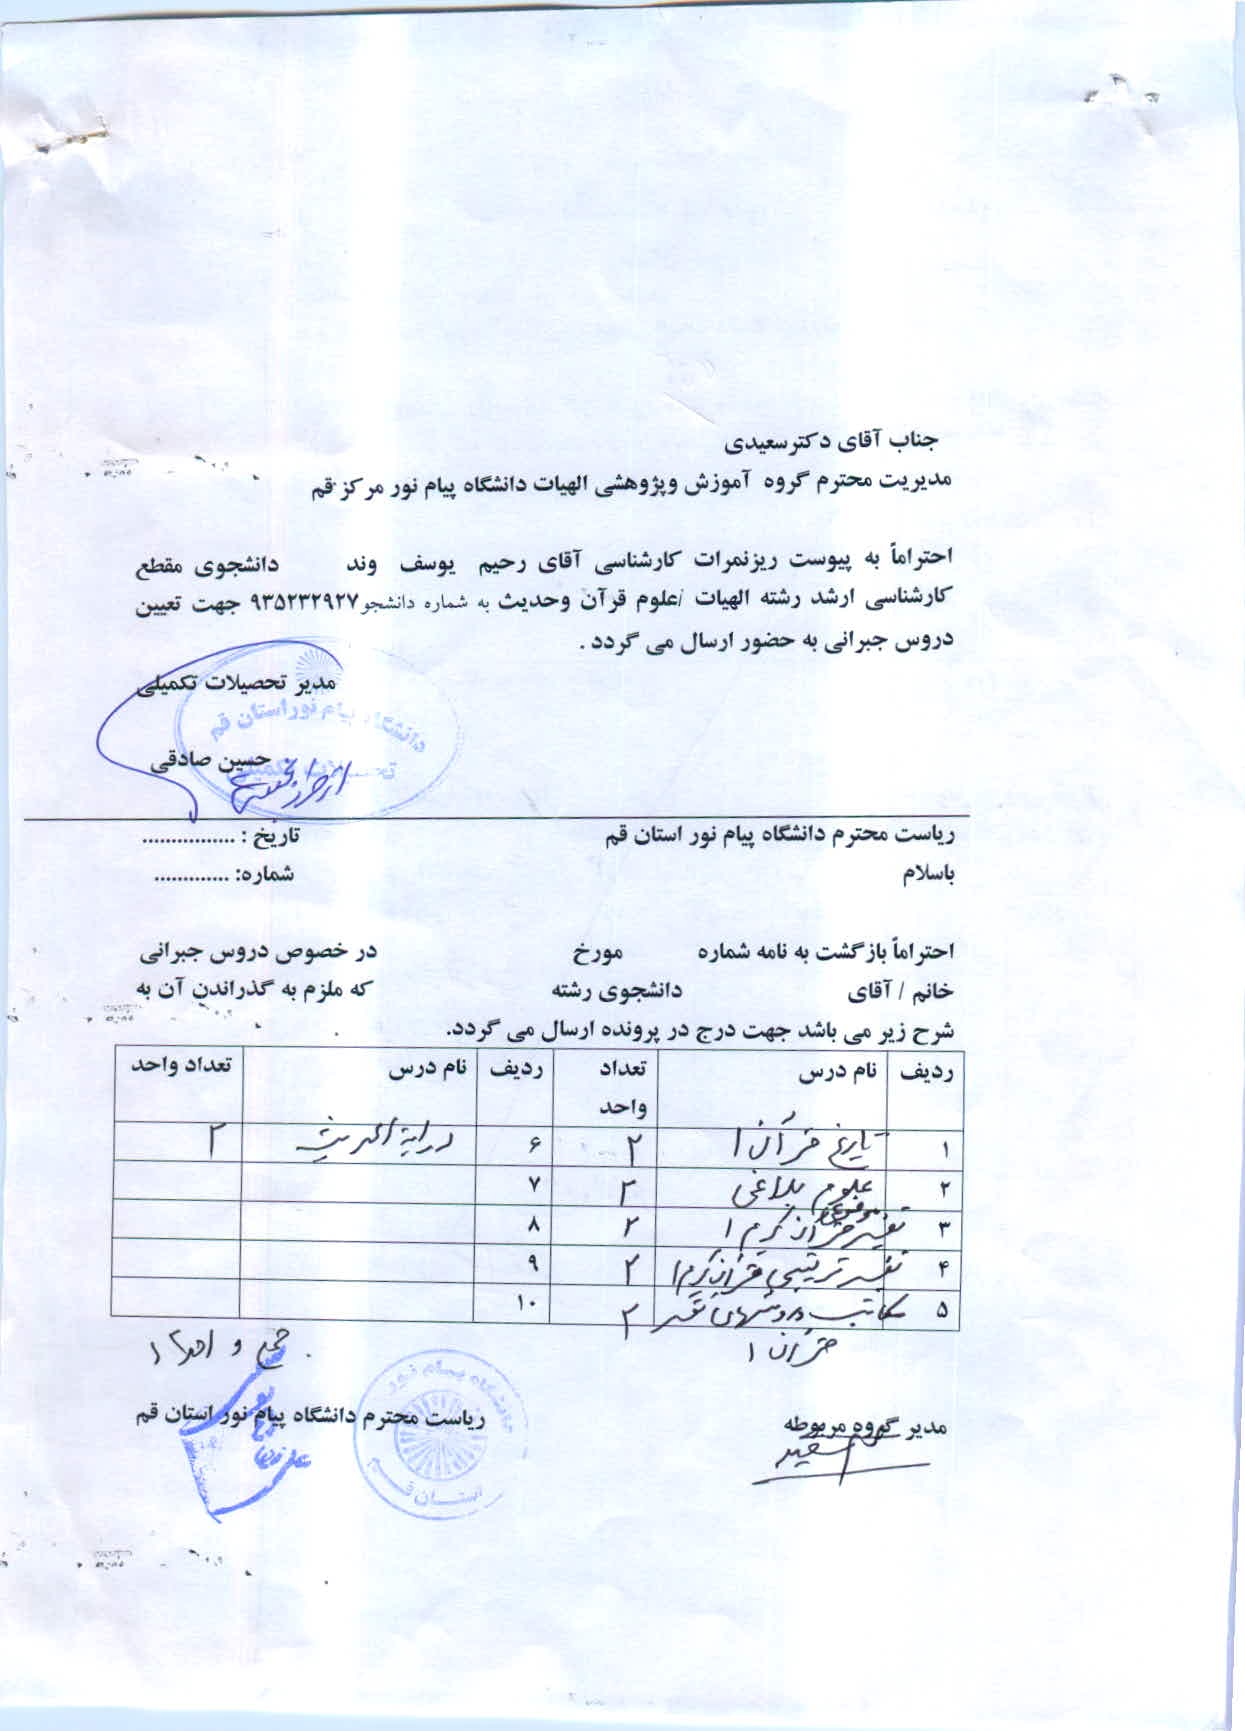 جناب آقای دکترسعیدی
مدیریت محترم گروه آموزش وپژوهشی الهیات دانشگاه پیام نور مرکز قم
احتراماً به پیوست ریزنمرات کارشناسی آقای رحیم یوسف وند دانشجوی مقطع
کارشناسی ارشد رشته الهیات /علوم قرآن وحدیث به شماره دانشجو۹۳۵۲۳۲۹۲۷ جهت تعیین
دروس جبرانی به حضور ارسال می گردد .
مدیر تحصیلات تکمیلی
دانشگاه پیام نور استان قم
حسین صادقی
تحصیلات تکمیلی
ریاست محترم دانشگاه پیام نور استان قم تاریخ : ................
باسلام شماره: .............
احتراماً بازگشت به نامه شماره مورخ در خصوص دروس جبرانی
خانم / آقای دانشجوی رشته که ملزم به گذراندن آن به
شرح زیر می باشد جهت درج در پرونده ارسال می گردد.
ردیف نام درس تعداد واحد ردیف نام درس تعداد واحد
۱ تاریخ قرآن ۱ ۲ ۶ درایة الحدیث ۲
۲ علوم بلاغی ۲ ۷
۳ تفسیر موضوعی قرآن کریم ۱ ۲ ۸
۴ تفسیر ترتیبی قرآن کریم ۱ ۲ ۹
۵ مکاتب و روشهای تفسیر ۲ ۱۰
قرآن ۱
جمع و
مدیر گروه مربوطه ریاست محترم دانشگاه پیام نور استان قم
دانشگاه پیام نور
استان قم